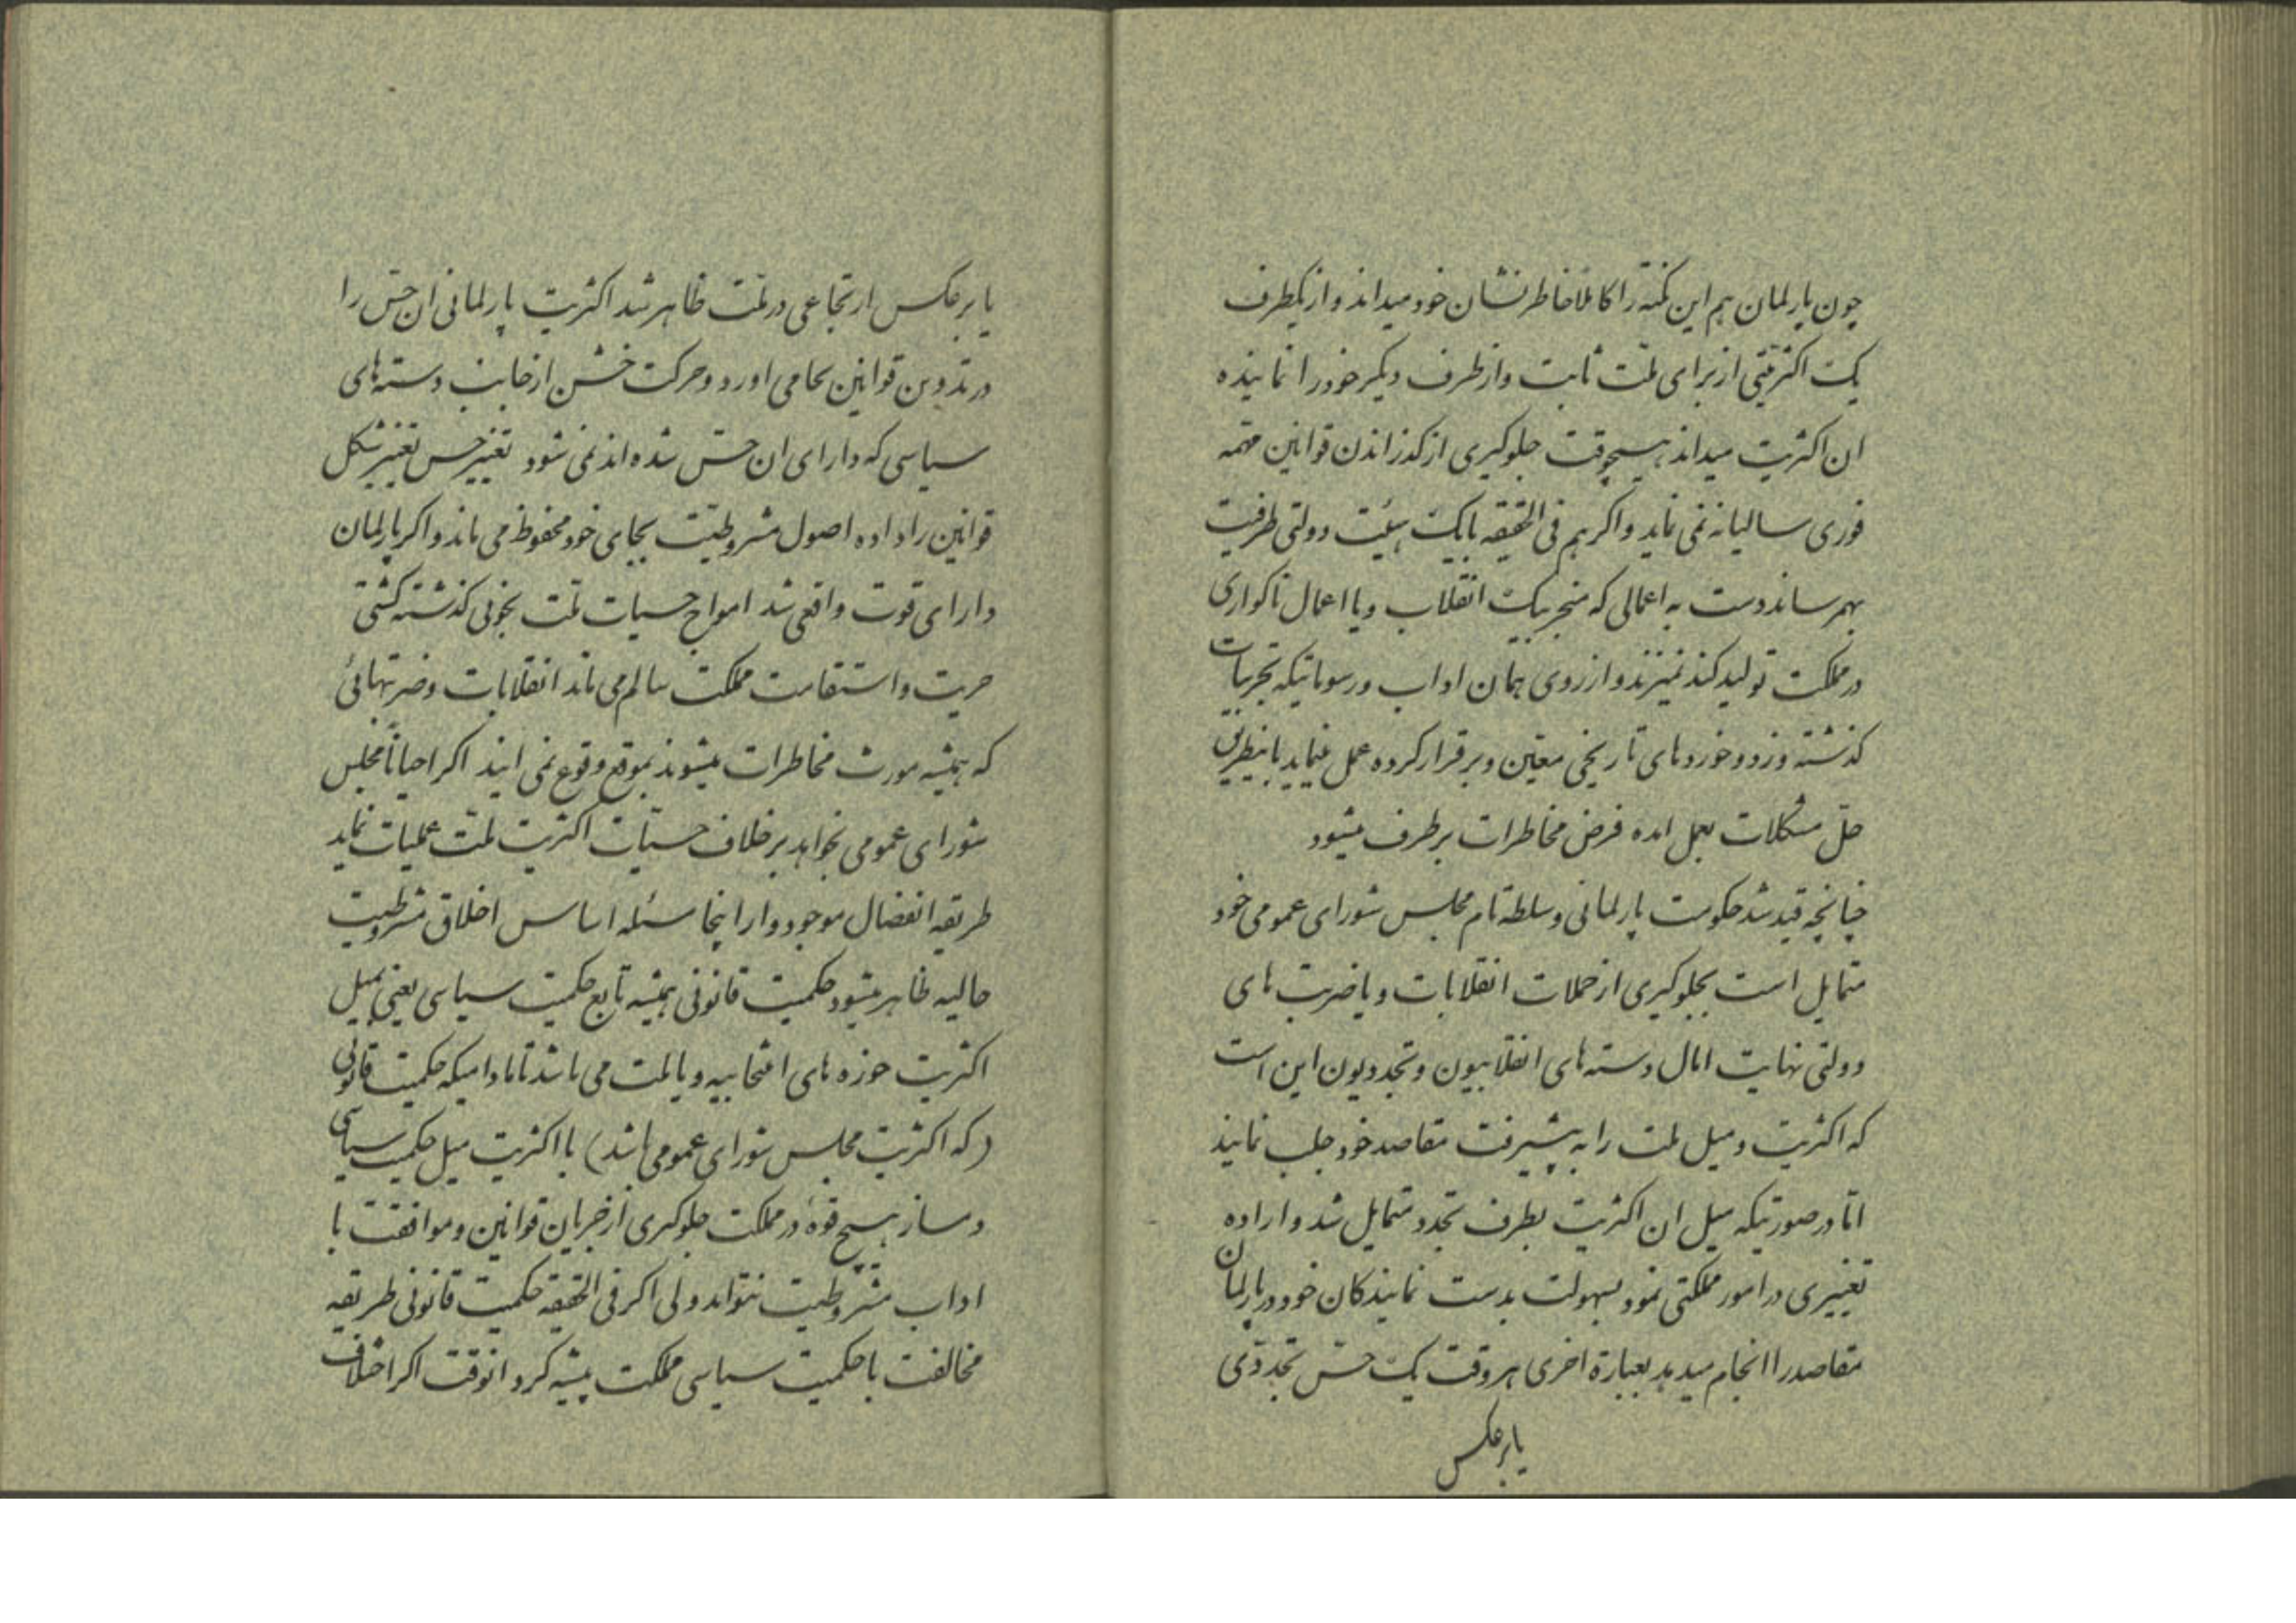 چون پارلمان هم این نکته را کاملا خاطرنشان خود میداند و از یکطرف
یک اکثریتی از برای ملت ثابت و از طرف دیکر خود را نماینده
ان اکثریت میداند هیچوقت جلوکیری از کذراندن قوانین مهمه
فوری سالیانه نمی نماید و اکر هم فی الحقیقه با یک هیئت دولتی طرفیت
بهم رساند دست به اعمالی که منجر بیک انقلاب و یا اعمال ناکواری
در مملکت تولید کند نمیزند و از روی همان اداب و رسوماتیکه تجربیات
کذشته و زد و خوردهای تاریخی معین و برقرار کرده عمل مینماید باینطریق
حل مشکلات بعمل امده فرض مخاطرات برطرف میشود
چنانچه قید شد حکومت پارلمانی و سلطه تام مجلس شورای عمومی خود
متمایل است بجلوکیری از حملات انقلابات و یا ضربت های
دولتی نهایت امال دسته های انقلابیون و تجددیون این است
که اکثریت و میل ملت را به پیشرفت مقاصد خود جلب نمایند
اما در صورتیکه میل ان اکثریت بطرف تجدد متمایل شد و اراده
تغییری در امور مملکتی نمود بسهولت بدست نمایندکان خود در پارلمان
مقاصد را انجام میدهد بعبارة اخری هر وقت یک حس تجددی
یا برعکس
یا برعکس ارتجاعی در ملت ظاهر شد اکثریت پارلمانی ان حس را
در تدوین قوانین بجا می اورد و حرکت خشن از جانب دسته های
سیاسی که دارای ان حس شده اند نمی شود تغییر حس تغییر شکل
قوانین را داده اصول مشروطیت بجای خود محفوظ می ماند و اکر پارلمان
دارای قوت واقعی شد امواج حسیات ملت بخوبی کذشته کشتی
حریت و استقامت مملکت سالم می ماند انقلابات و ضربتهائی
که همیشه مورث مخاطرات میشوند بموقع وقوع نمی ایند اکر احیاناً مجلس
شورای عمومی بخواهد برخلاف حسیات اکثریت ملت عملیات نماید
طریقه انفصال موجود و از اینجا مسئله اساس اخلاق مشروطیت
حالیه ظاهر میشود حکمیت قانونی همیشه تابع حکمیت سیاسی یعنی میل
اکثریت حوزه های انتخابیه و یا ملت می باشد تا مادامیکه حکمیت قانونی
(که اکثریت مجلس شورای عمومی باشد) با اکثریت میل حکمیت سیاسی
دمساز هیچ قوهٔ در مملکت جلوکیری از جریان قوانین و موافقت با
اداب مشروطیت نتواند ولی اکر فی الحقیقه حکمیت قانونی طریقه
مخالفت با حکمیت سیاسی مملکت پیشه کرد انوقت اکر اختلاف